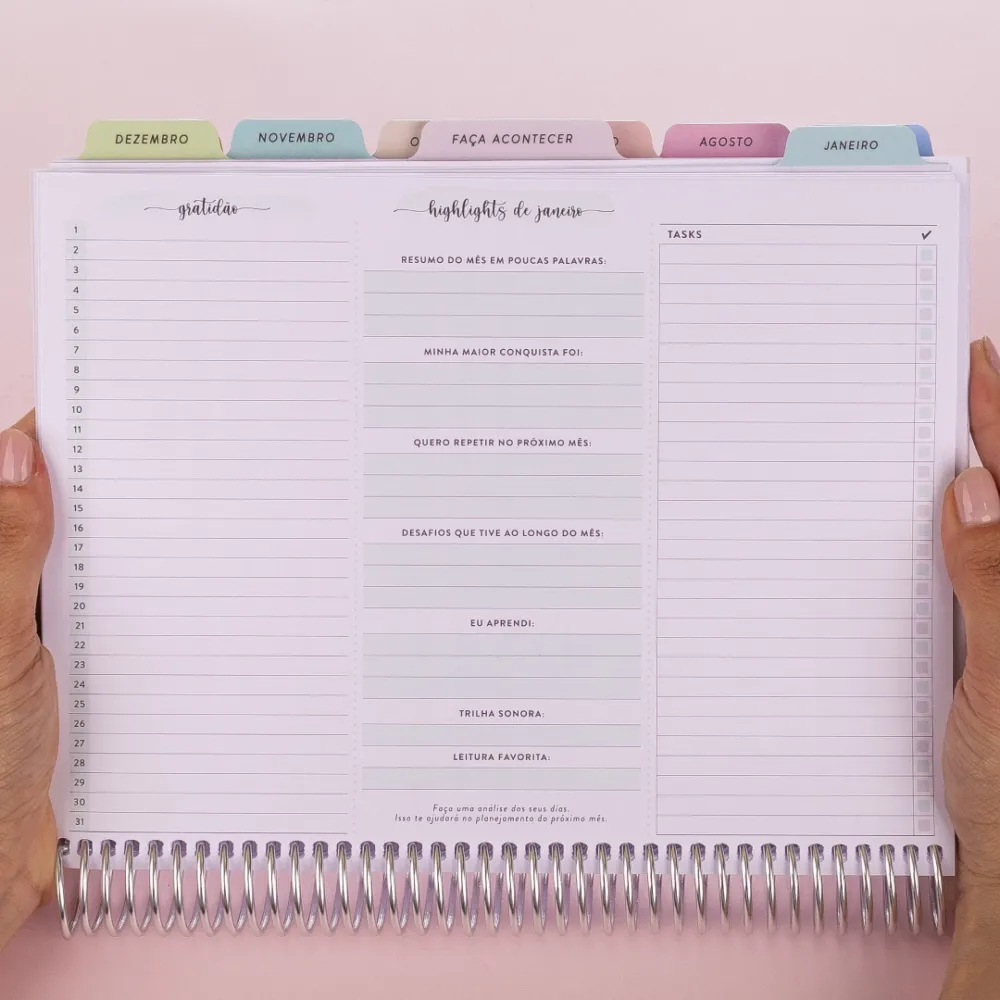 DEZEMBRO
NOVEMBRO
O
FAÇA ACONTECER
O
AGOSTO
JANEIRO
gratidão
1
2
3
4
5
6
7
8
9
10
11
12
13
14
15
16
17
18
19
20
21
22
23
24
25
26
27
28
29
30
31
highlights de janeiro
RESUMO DO MÊS EM POUCAS PALAVRAS:
MINHA MAIOR CONQUISTA FOI:
QUERO REPETIR NO PRÓXIMO MÊS:
DESAFIOS QUE TIVE AO LONGO DO MÊS:
EU APRENDI:
TRILHA SONORA:
LEITURA FAVORITA:
Faça uma análise dos seus dias.
Isso te ajudará no planejamento do próximo mês.
TASKS ✓